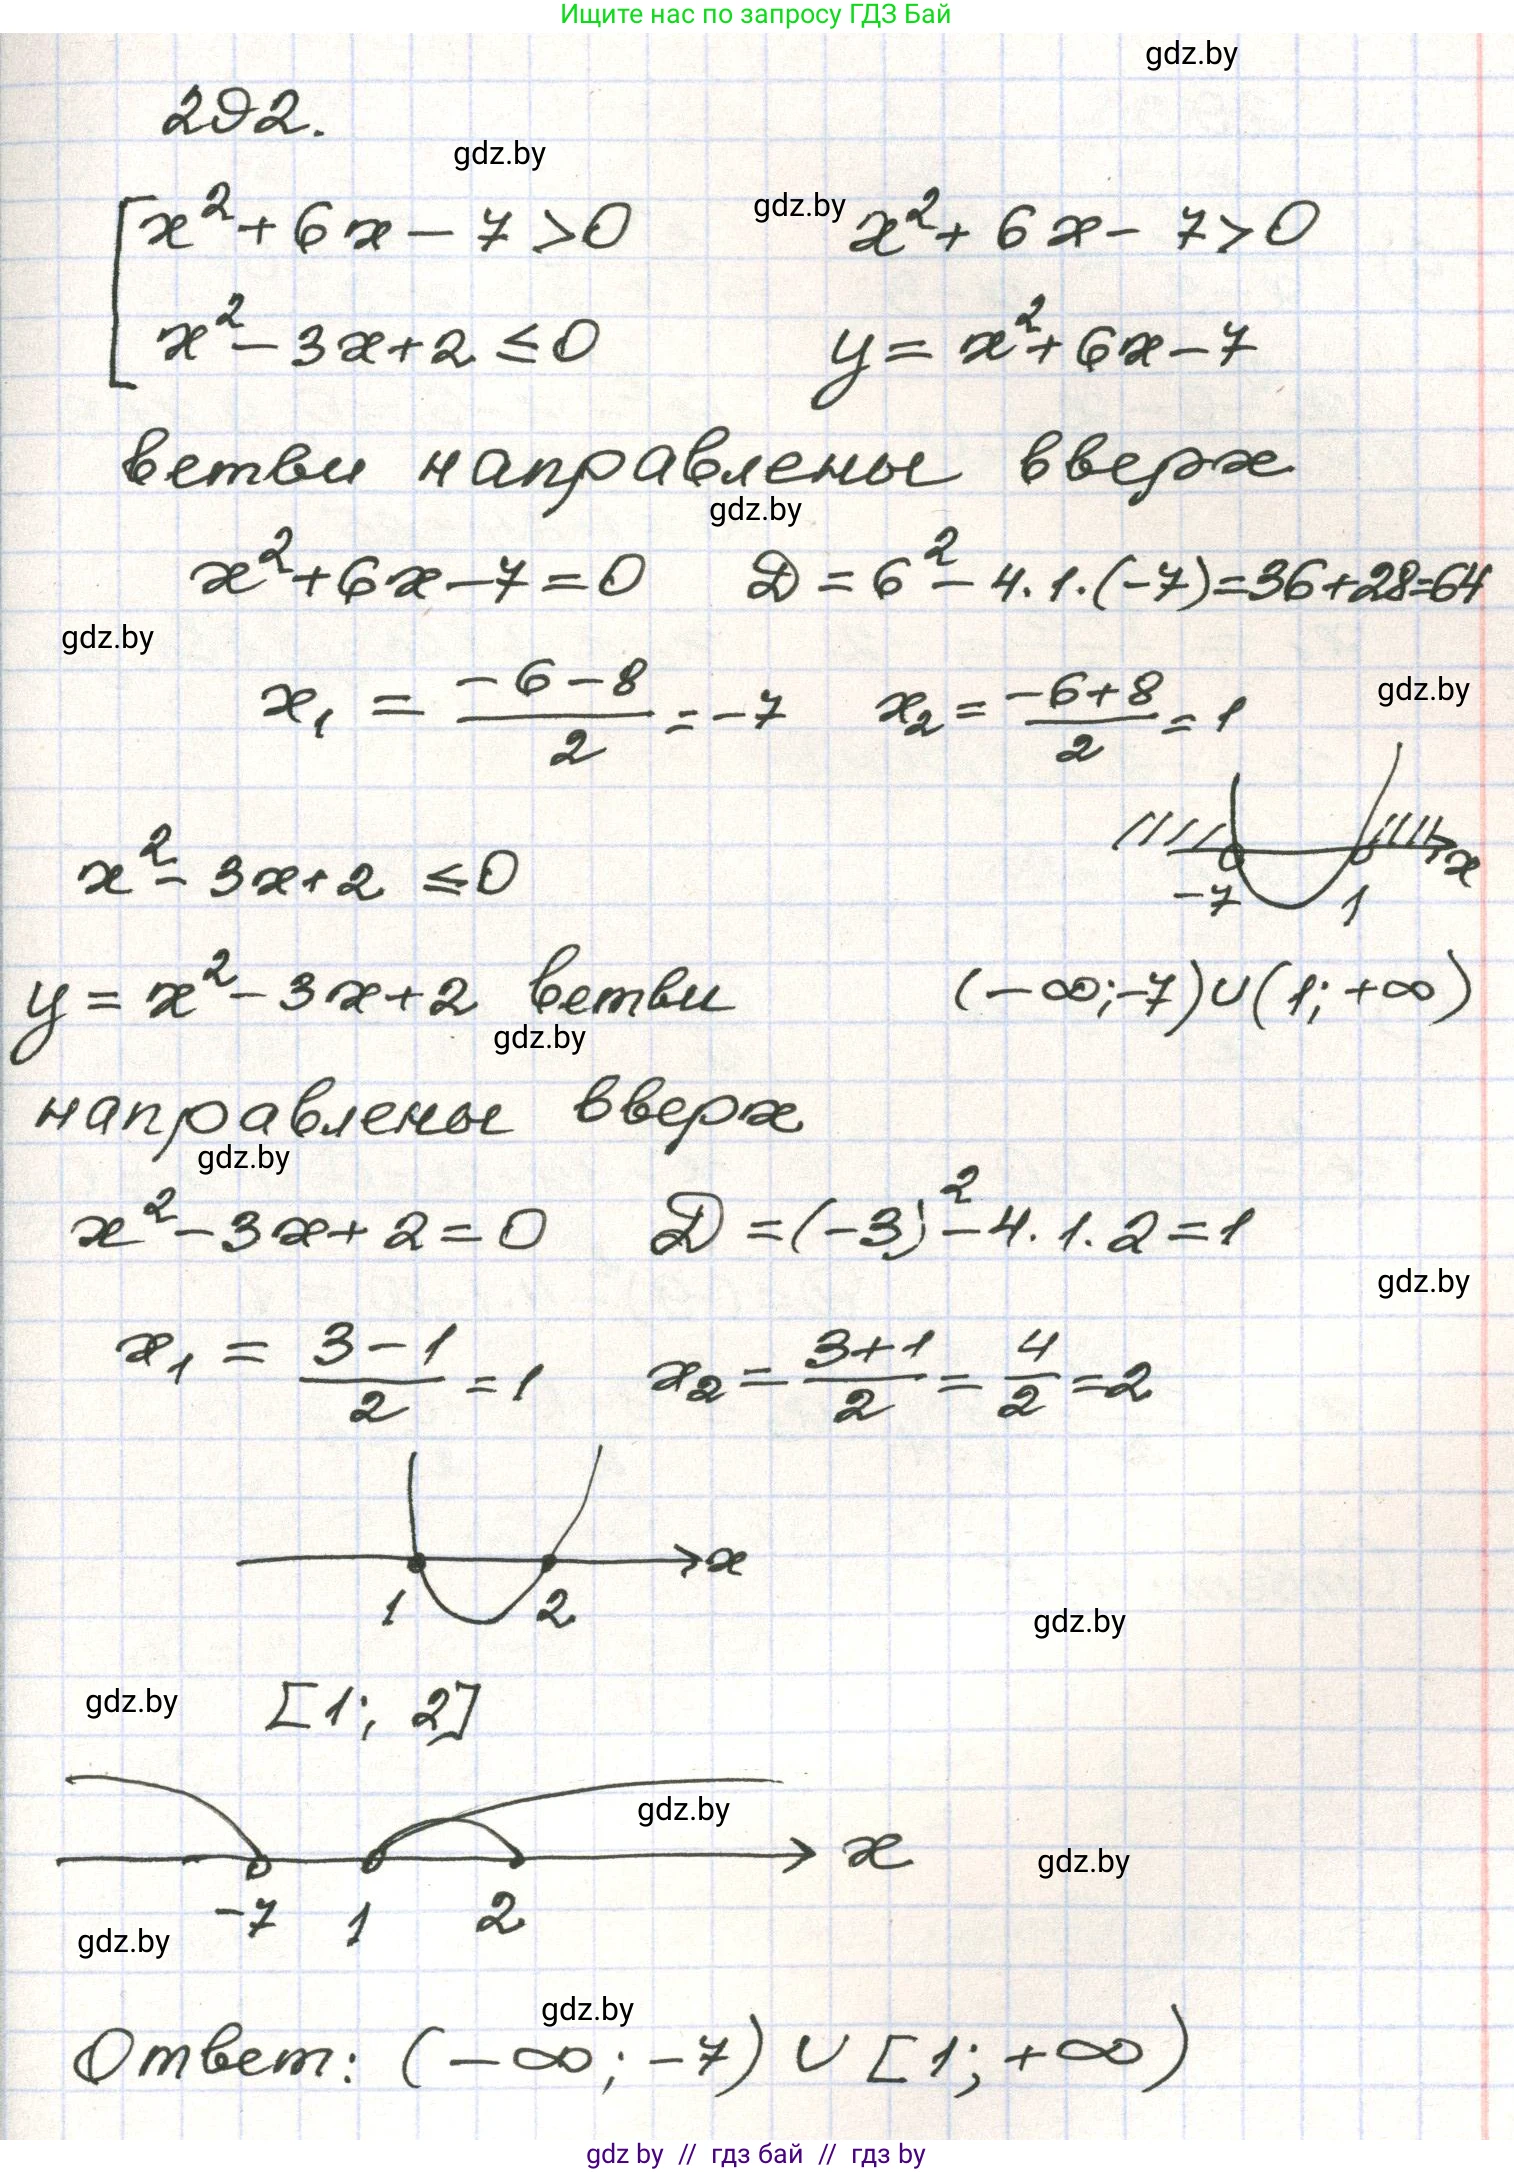 Ищите нас по запросу ГДЗ Бай
gdz.by
292.
gdz.by
x² + 6x - 7 > 0
gdz.by
x² + 6x - 7 > 0
x² - 3x + 2 ≤ 0
y = x² + 6x - 7
ветви направлены вверх
gdz.by
x² + 6x - 7 = 0 D = 6² - 4·1·(-7) = 36 + 28 = 64
gdz.by
x₁ = (-6-8)/2 = -7 x₂ = (-6+8)/2 = 1
gdz.by
x² - 3x + 2 ≤ 0
-7 1 x
y = x² - 3x + 2 ветви
(-∞; -7) ∪ (1; +∞)
gdz.by
направлены вверх
gdz.by
x² - 3x + 2 = 0 D = (-3)² - 4·1·2 = 1
gdz.by
x₁ = (3-1)/2 = 1 x₂ = (3+1)/2 = 4/2 = 2
1 2 x
gdz.by
gdz.by
[1; 2]
gdz.by
x
gdz.by
-7 1 2
gdz.by
gdz.by
Ответ: (-∞; -7) ∪ [1; +∞)
gdz by // гдз бай // гдз by